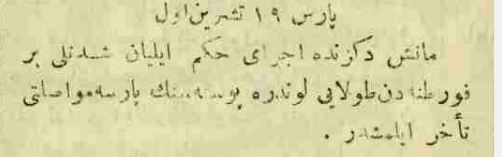 پارس ١٩ تشرين اول
مانش دكزنده اجراى حكم ايليان شدتلى بر
فورطنه دن طولايى لوندره پوسته سنك پارسه مواصلتى
تأخر ايلمشدر .